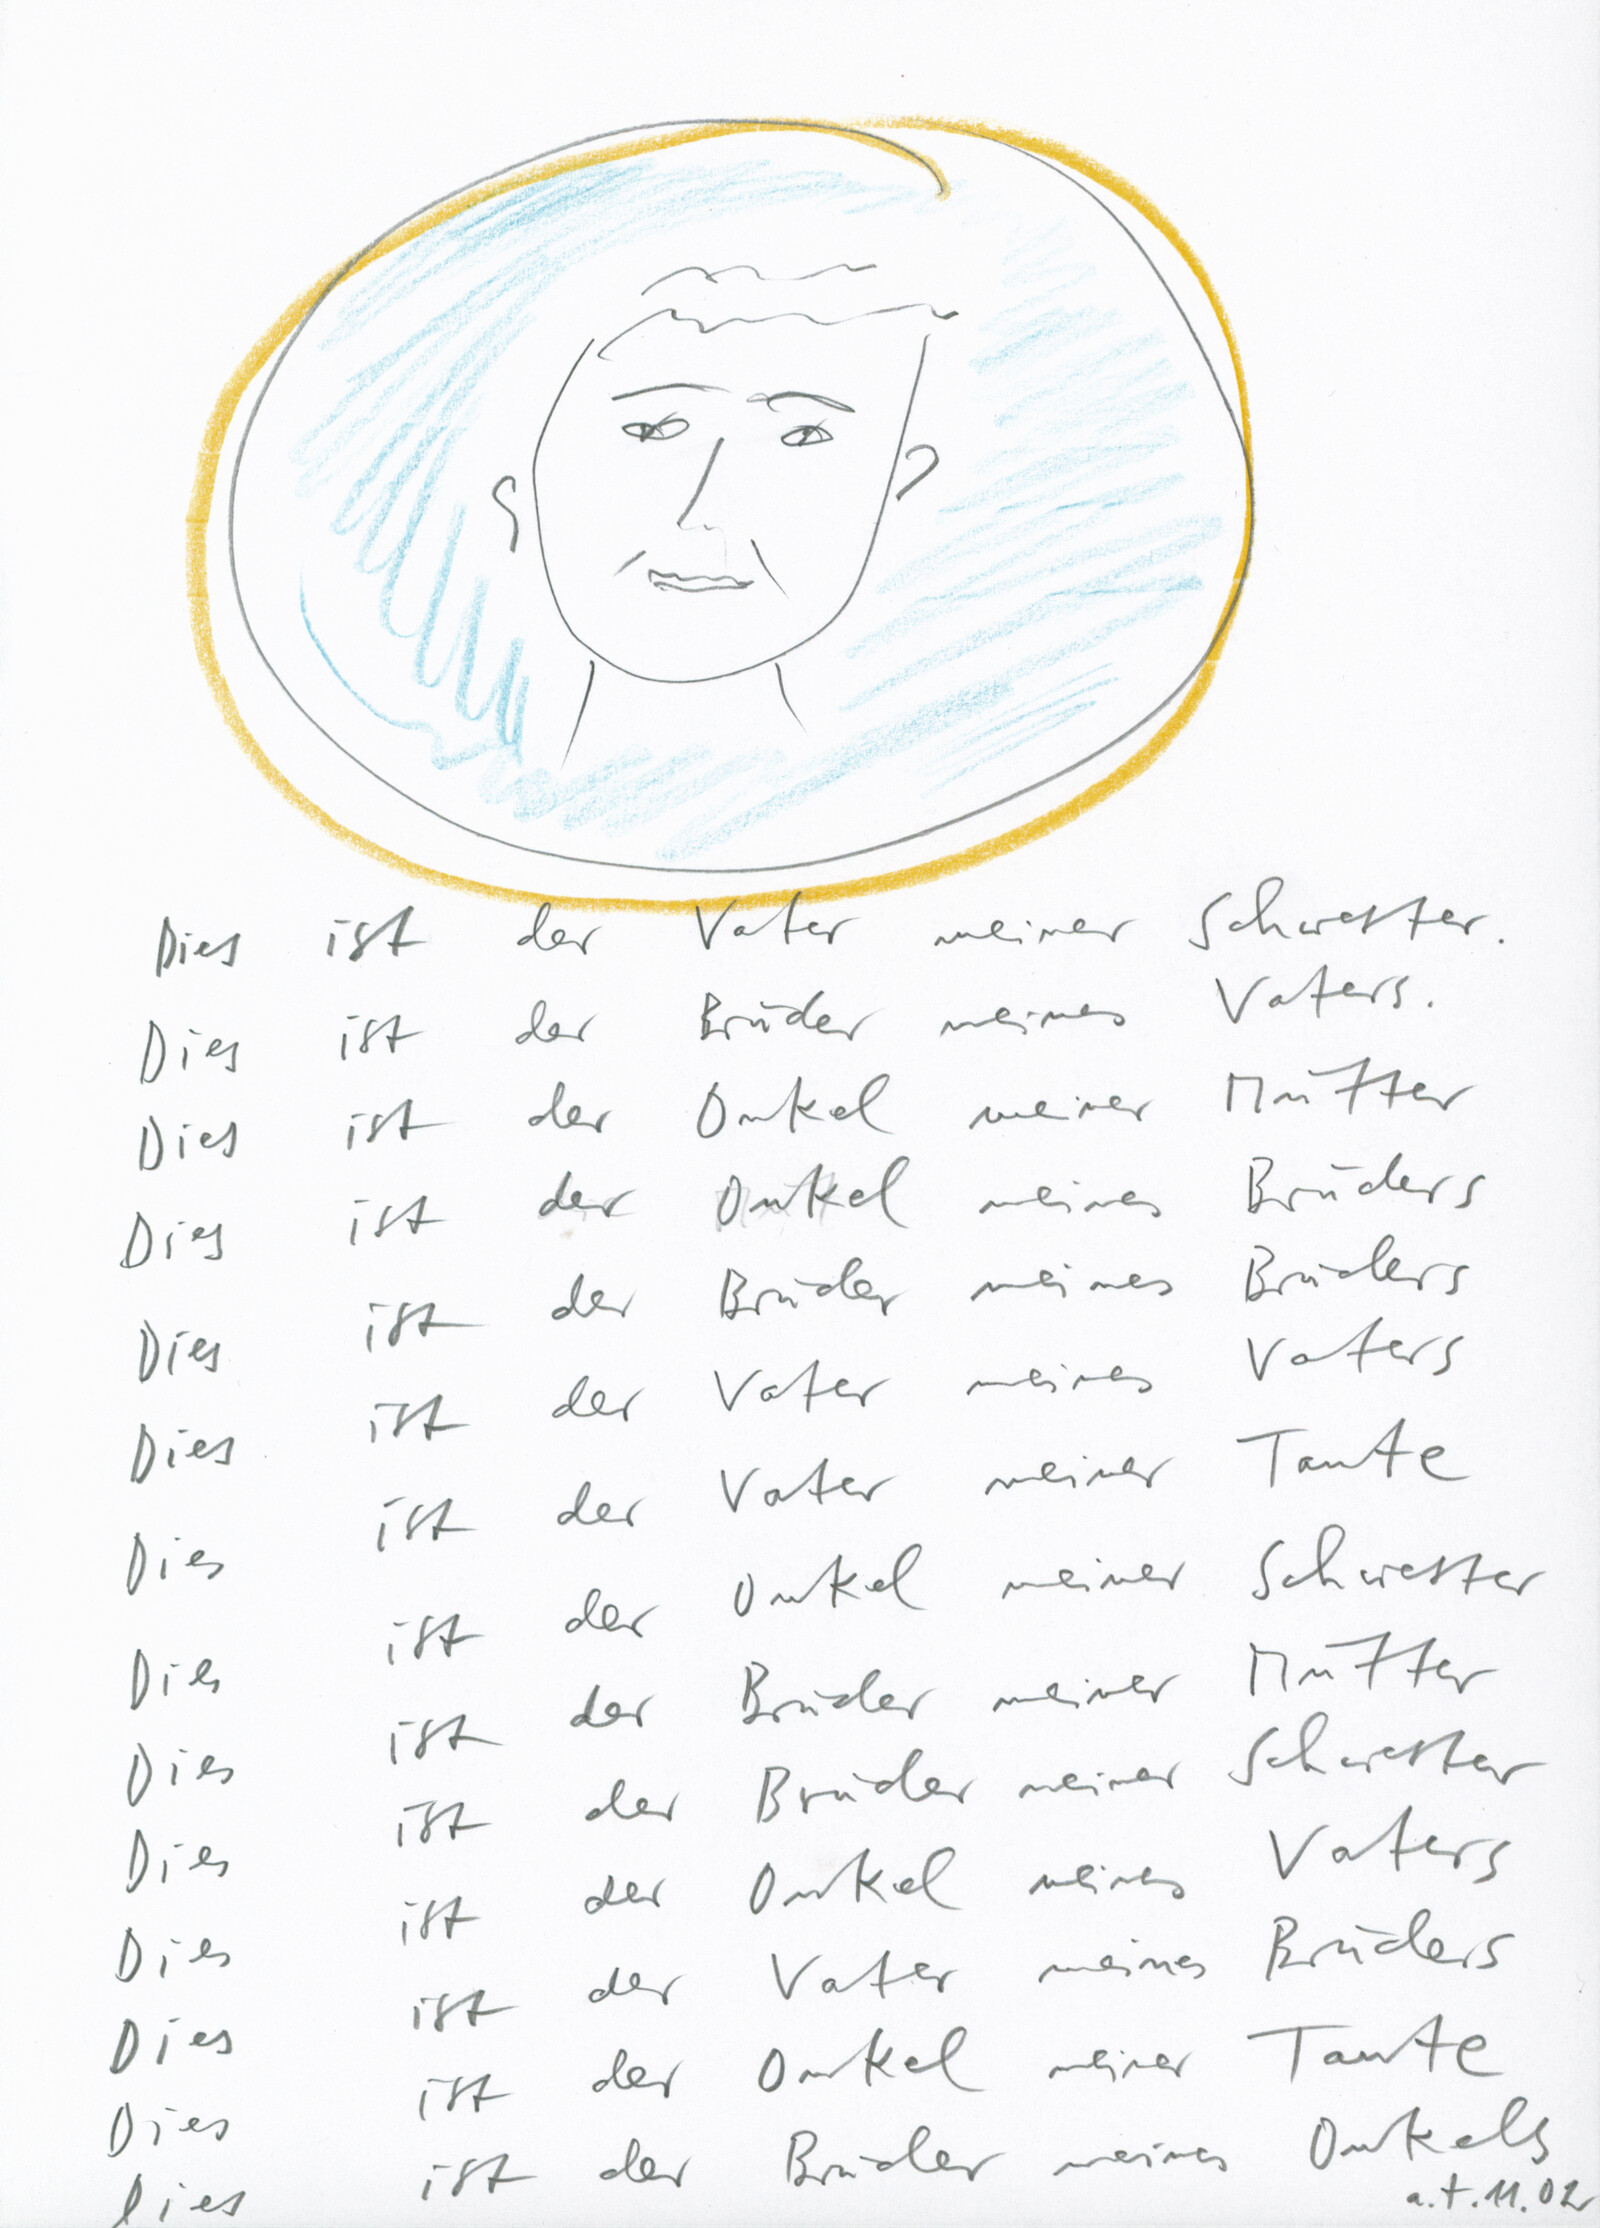 Dies ist der Vater meiner Schwester.
Dies ist der Bruder meines Vaters.
Dies ist der Onkel meiner Mutter
Dies ist der Onkel meines Bruders
Dies ist der Bruder meines Bruders
Dies ist der Vater meines Vaters
Dies ist der Vater meiner Tante
Dies ist der Onkel meiner Schwester
Dies ist der Bruder meiner Mutter
Dies ist der Bruder meiner Schwester
Dies ist der Onkel meines Vaters
Dies ist der Vater meines Bruders
Dies ist der Onkel meiner Tante
Dies ist der Bruder meines Onkels
a.t.11.02